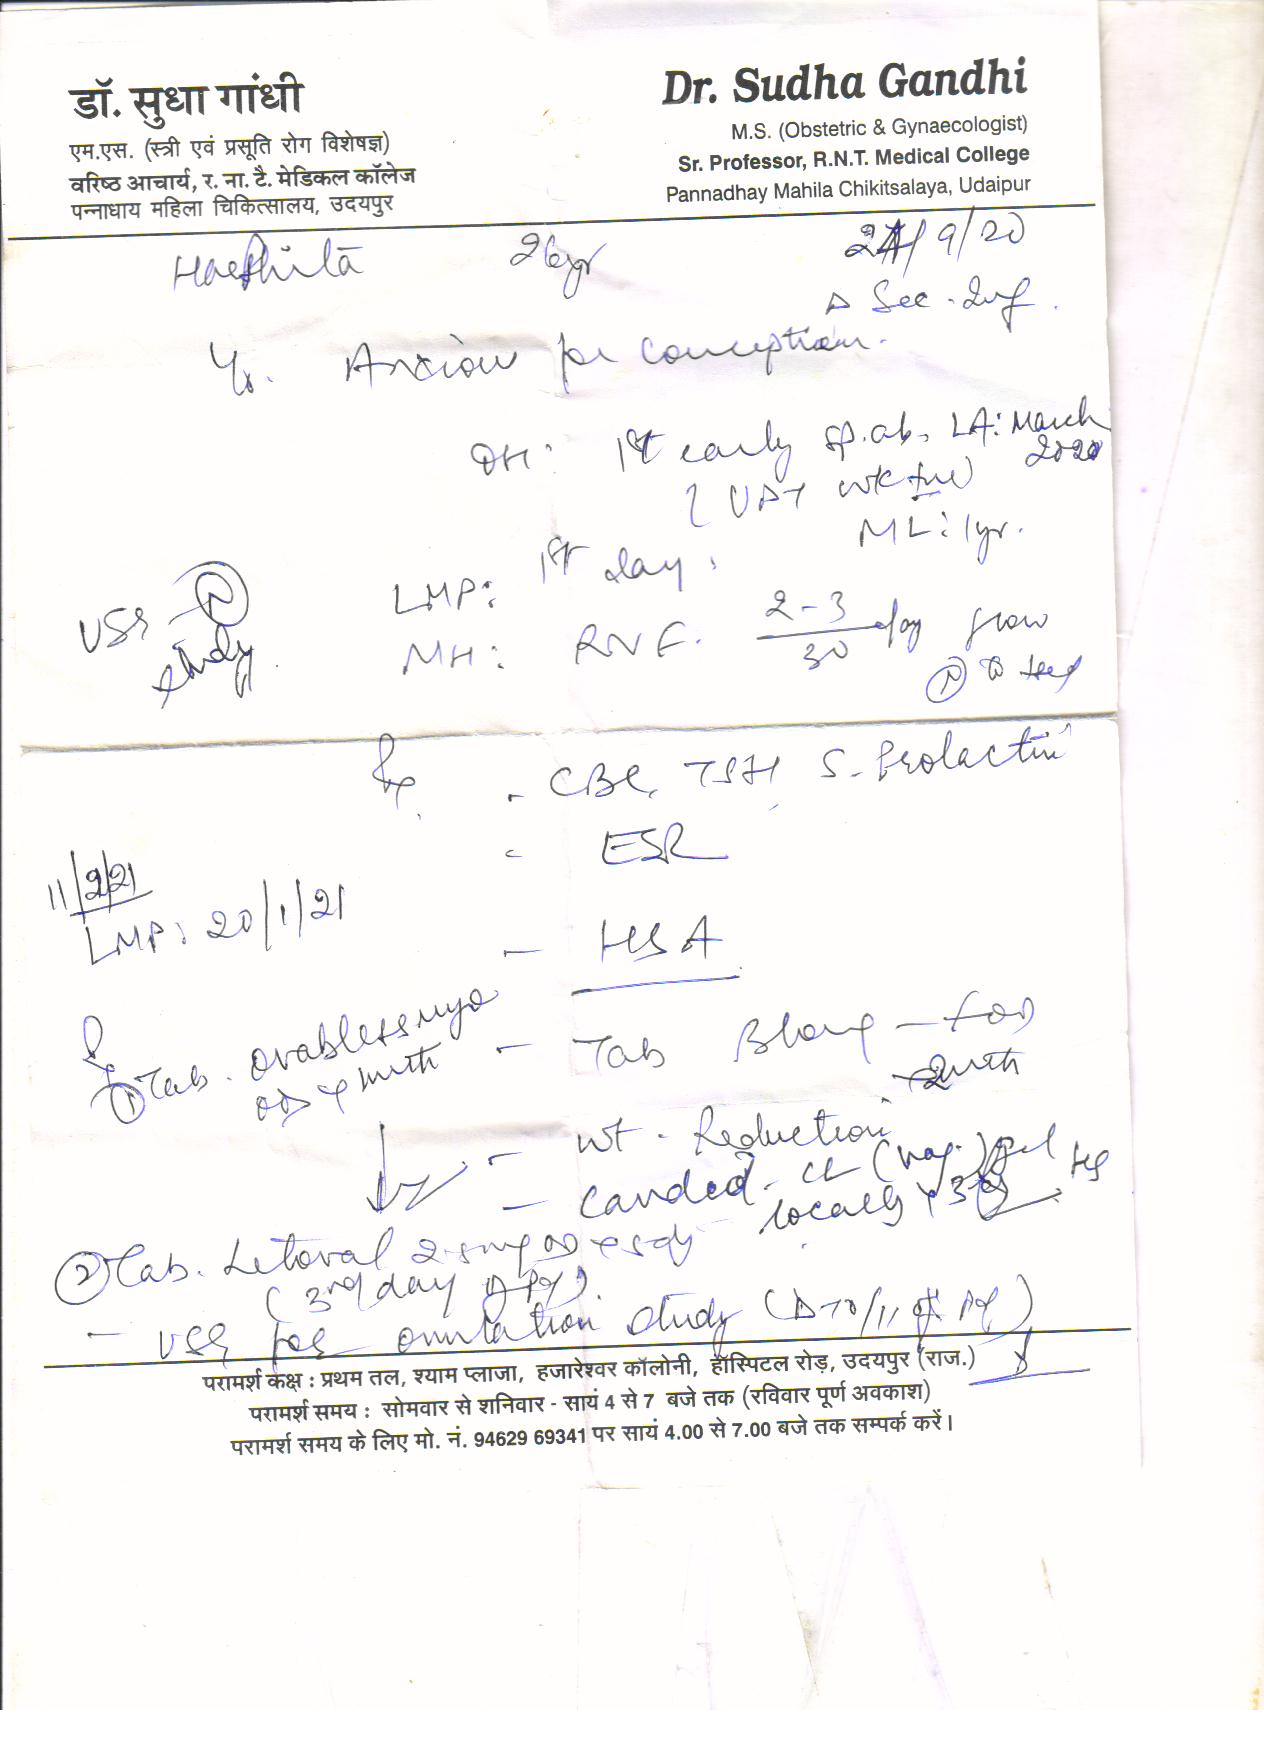 डॉ. सुधा गांधी
एम.एस. (स्त्री एवं प्रसूति रोग विशेषज्ञ)
वरिष्ठ आचार्य, र. ना. टै. मेडिकल कॉलेज
पन्नाधाय महिला चिकित्सालय, उदयपुर
Dr. Sudha Gandhi
M.S. (Obstetric & Gynaecologist)
Sr. Professor, R.N.T. Medical College
Pannadhay Mahila Chikitsalaya, Udaipur
26yr
/9/20
Sec. Inf.
Anxious for conception.
OH: 1st early sp. ab. LA: March 2020
UPT
ML: 1yr.
LMP: 1st day
USG (N) study
MH: 2-3/30 day flow
- CBC, TSH, S. Prolactin
- ESR
11/2/21
LMP: 20/1/21
- HSA
① Tab. Ovabless myo
OD x mnth
- Tab
- wt. Reduction
- Candid-CL (vag.) gel locally HS
② Tab. Letoval 2.5mg OD x 5dy
(3rd day of
- USG for ovulation study
परामर्श कक्ष : प्रथम तल, श्याम प्लाजा, हजारेश्वर कॉलोनी, हॉस्पिटल रोड़, उदयपुर (राज.)
परामर्श समय : सोमवार से शनिवार - सायं 4 से 7 बजे तक (रविवार पूर्ण अवकाश)
परामर्श समय के लिए मो. नं. 94629 69341 पर सायं 4.00 से 7.00 बजे तक सम्पर्क करें।